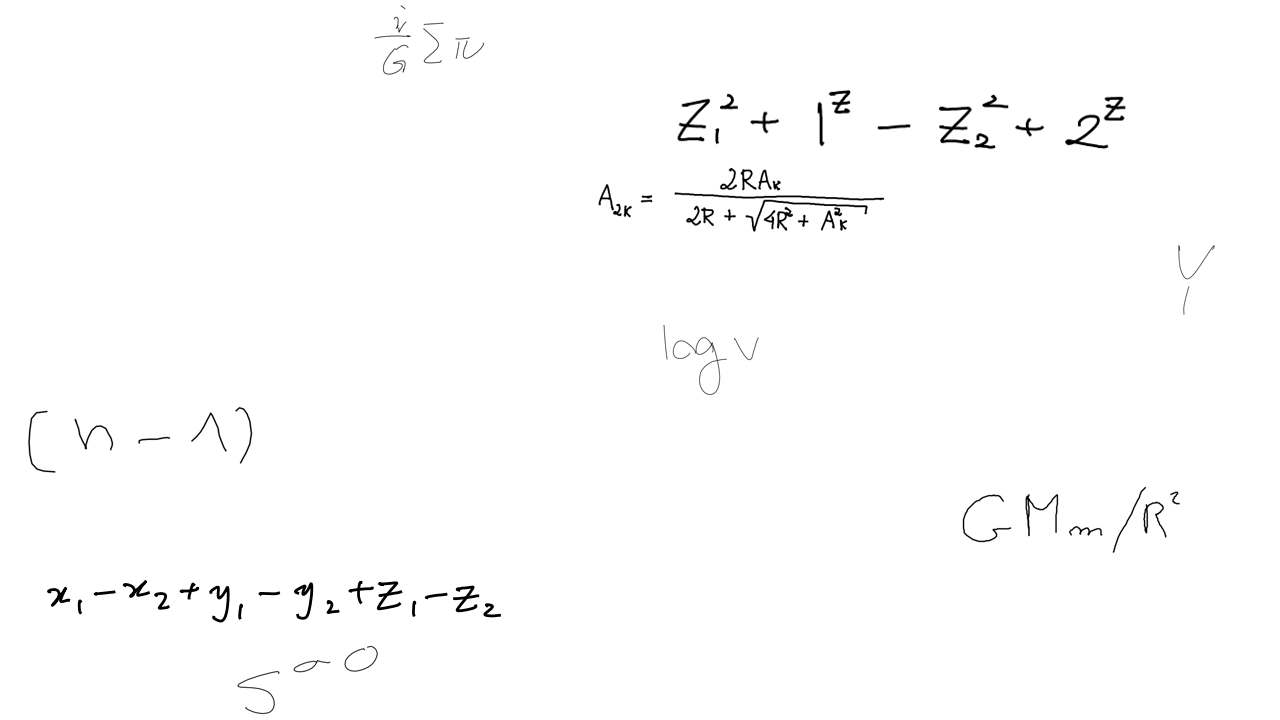 i/G Σπ
z_1^2 + 1^z - z_2^2 + 2^z
A_{2K} = \frac{2RA_K}{2R + \sqrt{4R^2 + A_K^2}}
log v
(n - 1)
GM_m/R^2
x_1 - x_2 + y_1 - y_2 + z_1 - z_2